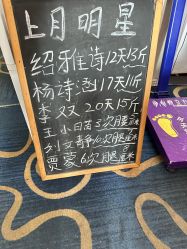 上月明星
绍雅诗12天13斤
杨诗涵17天11斤
李双20天15斤
王小苗三次腰
刘文静6次腿
贾蒙6次腿